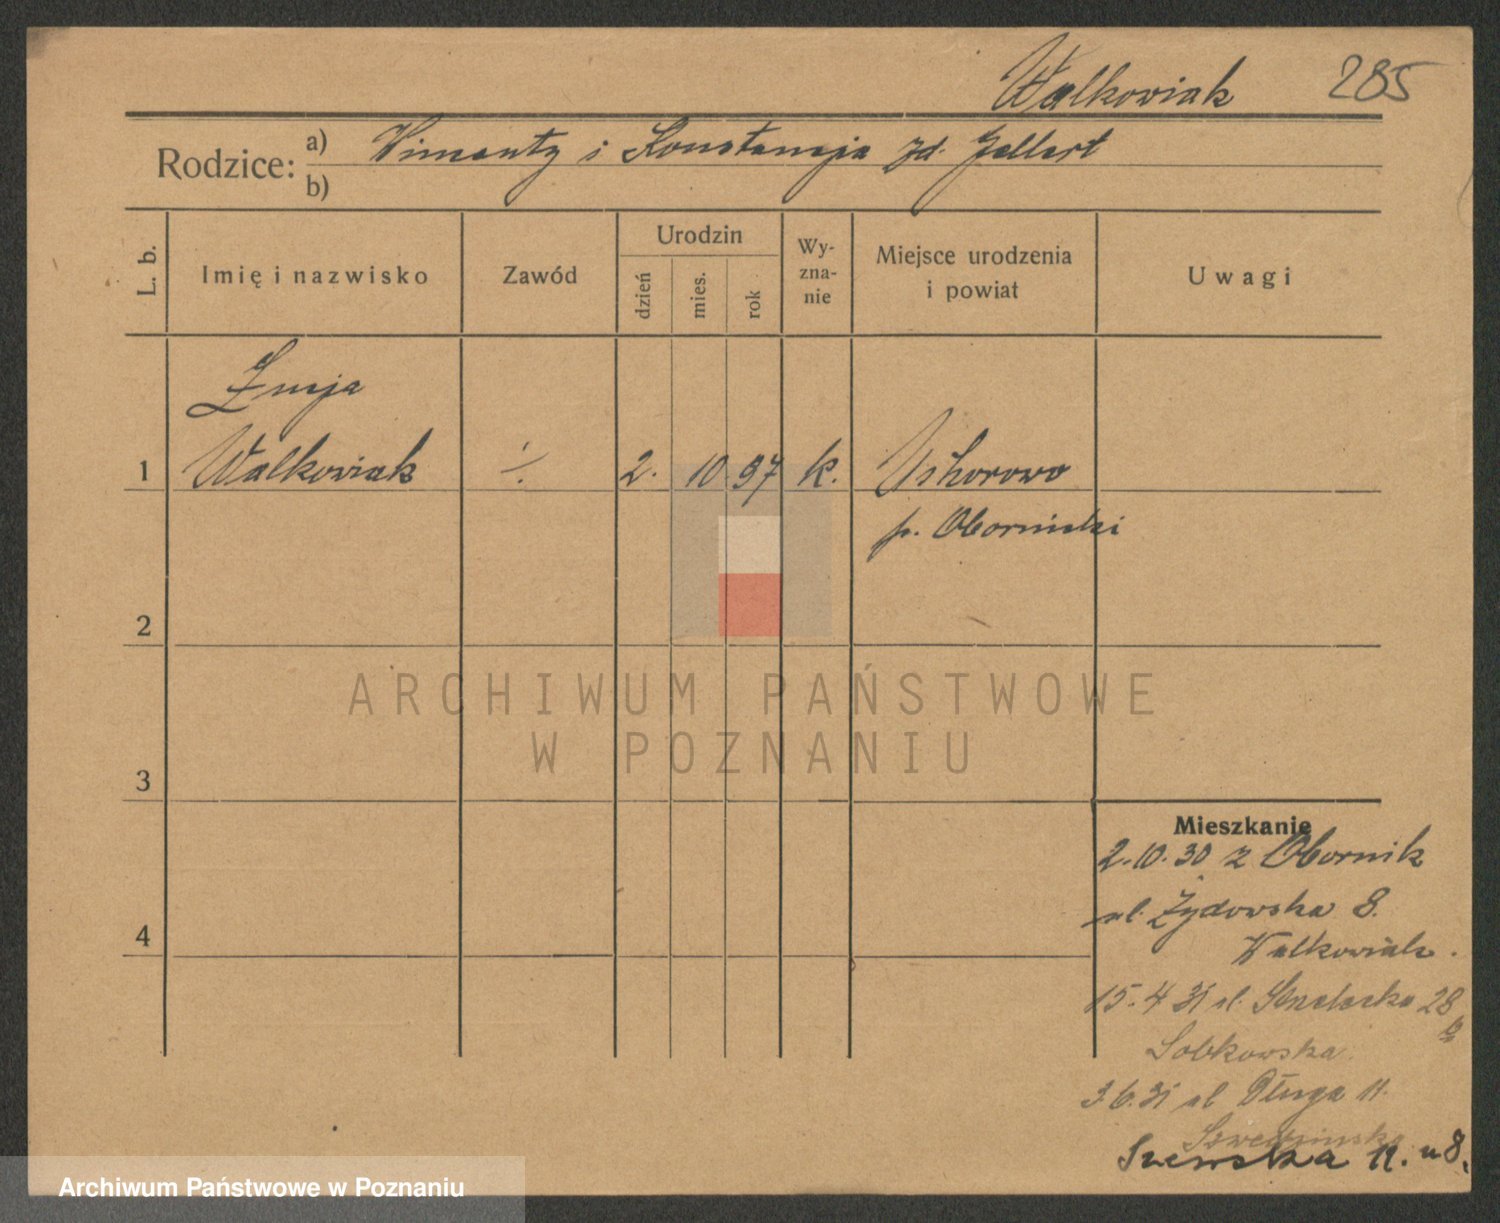 Walkowiak 285
Rodzice: a) Wincenty i Konstancja zd. Gellert
b)
L. b.
Imię i nazwisko
Zawód
Urodzin
dzień
mies.
rok
Wy-
zna-
nie
Miejsce urodzenia
i powiat
Uwagi
Łucja
1 Walkowiak ./. 2. 10 97 k.
p. Obornicki
2
3
4
ARCHIWUM PAŃSTWOWE
W POZNANIU
Mieszkanie
2.10.30 z Obornik
ul. Żydowska 8.
Walkowiak.
15.4 31 ul. 28
Sobkowska.
3.6.31 ul Długa 11.
Szewska 12. u 8.
Archiwum Państwowe w Poznaniu